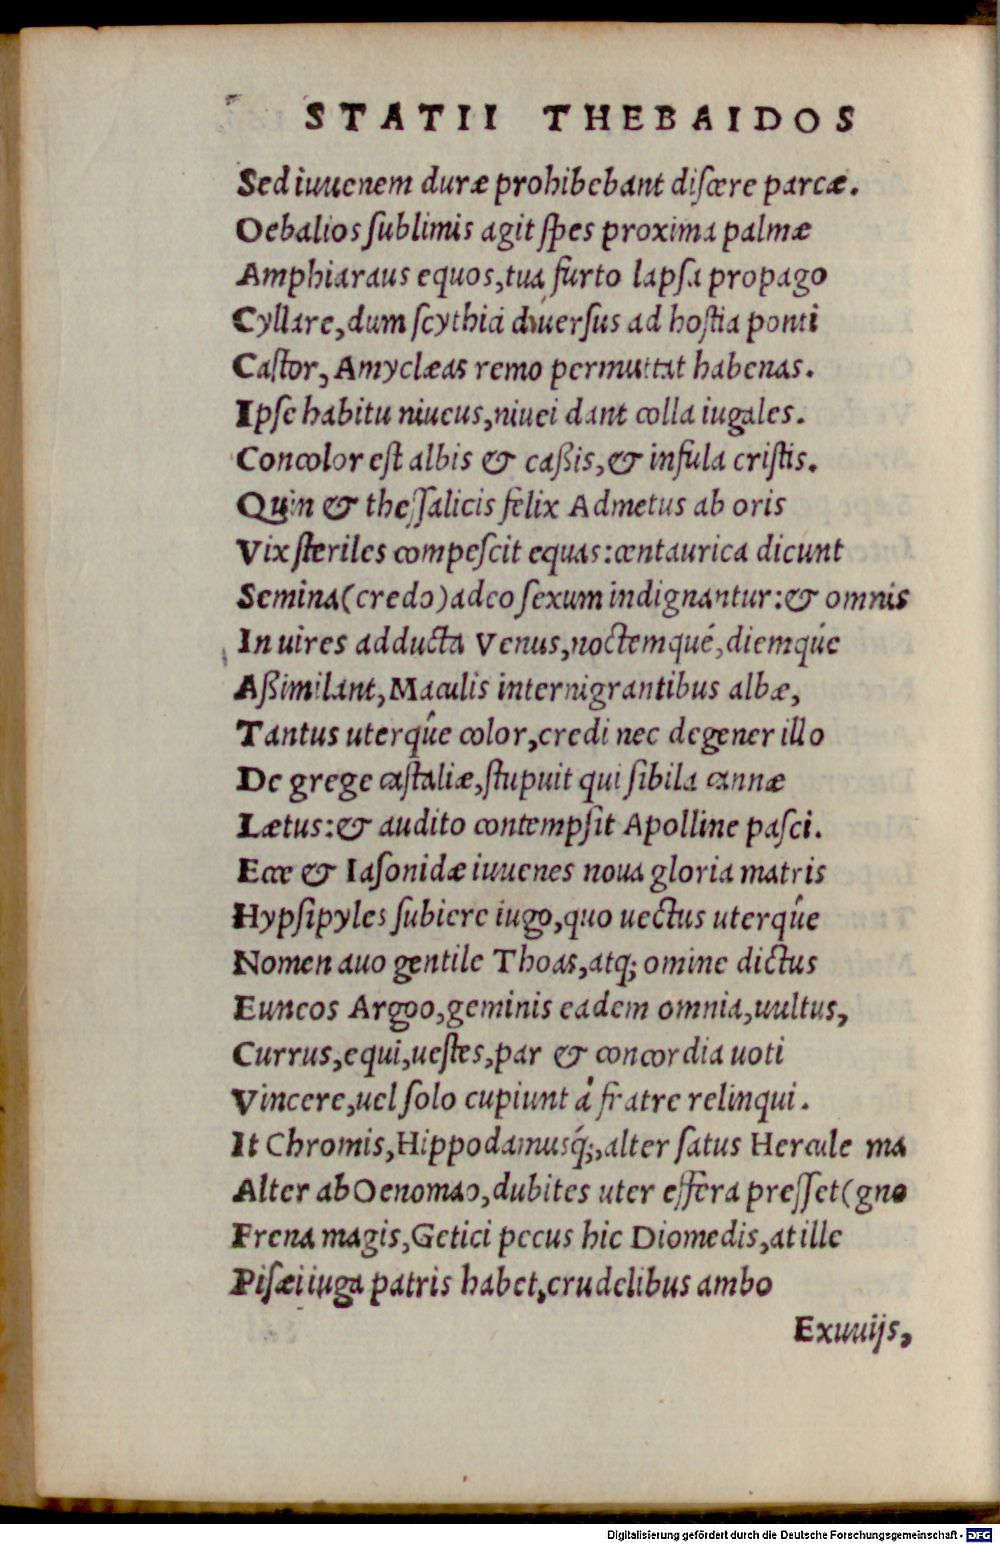 STATII THEBAIDOS
Sed iuuenem duræ prohibebant discere parcæ.
Oebalios sublimis agit spes proxima palmæ
Amphiaraus equos, tua furto lapsa propago
Cyllare, dum scythici diuersus ad hostia ponti
Castor, Amyclæas remo permuttat habenas.
Ipse habitu niueus, niuei dant colla iugales.
Concolor est albis & caßis, & infula cristis.
Quin & thessalicis felix Admetus ab oris
Vix steriles compescit equas: centaurica dicunt
Semina (credo) adeo sexum indignantur: & omnis
In uires adducta Venus, noctemqué, diemqúe
Aßimilant, Maculis internigrantibus albæ,
Tantus uterq́ue color, credi nec degener illo
De grege castaliæ, stupuit qui sibila cannæ
Lætus: & audito contempsit Apolline pasci.
Ecce & Iasonidæ iuuenes noua gloria matris
Hypsipyles subiere iugo, quo uectus uterq́ue
Nomen auo gentile Thoas, atq; omine dictus
Euneos Argoo, geminis eadem omnia, uultus,
Currus, equi, uestes, par & concordia uoti
Vincere, uel solo cupiunt á fratre relinqui.
It Chromis, Hippodamusq́;, alter satus Hercule ma
Alter ab Oenomao, dubites uter effera presset (gno
Frena magis, Getici pecus hic Diomedis, at ille
Pisæi iuga patris habet, crudelibus ambo
Exuuijs,
Digitalisierung gefördert durch die Deutsche Forschungsgemeinschaft - DFG